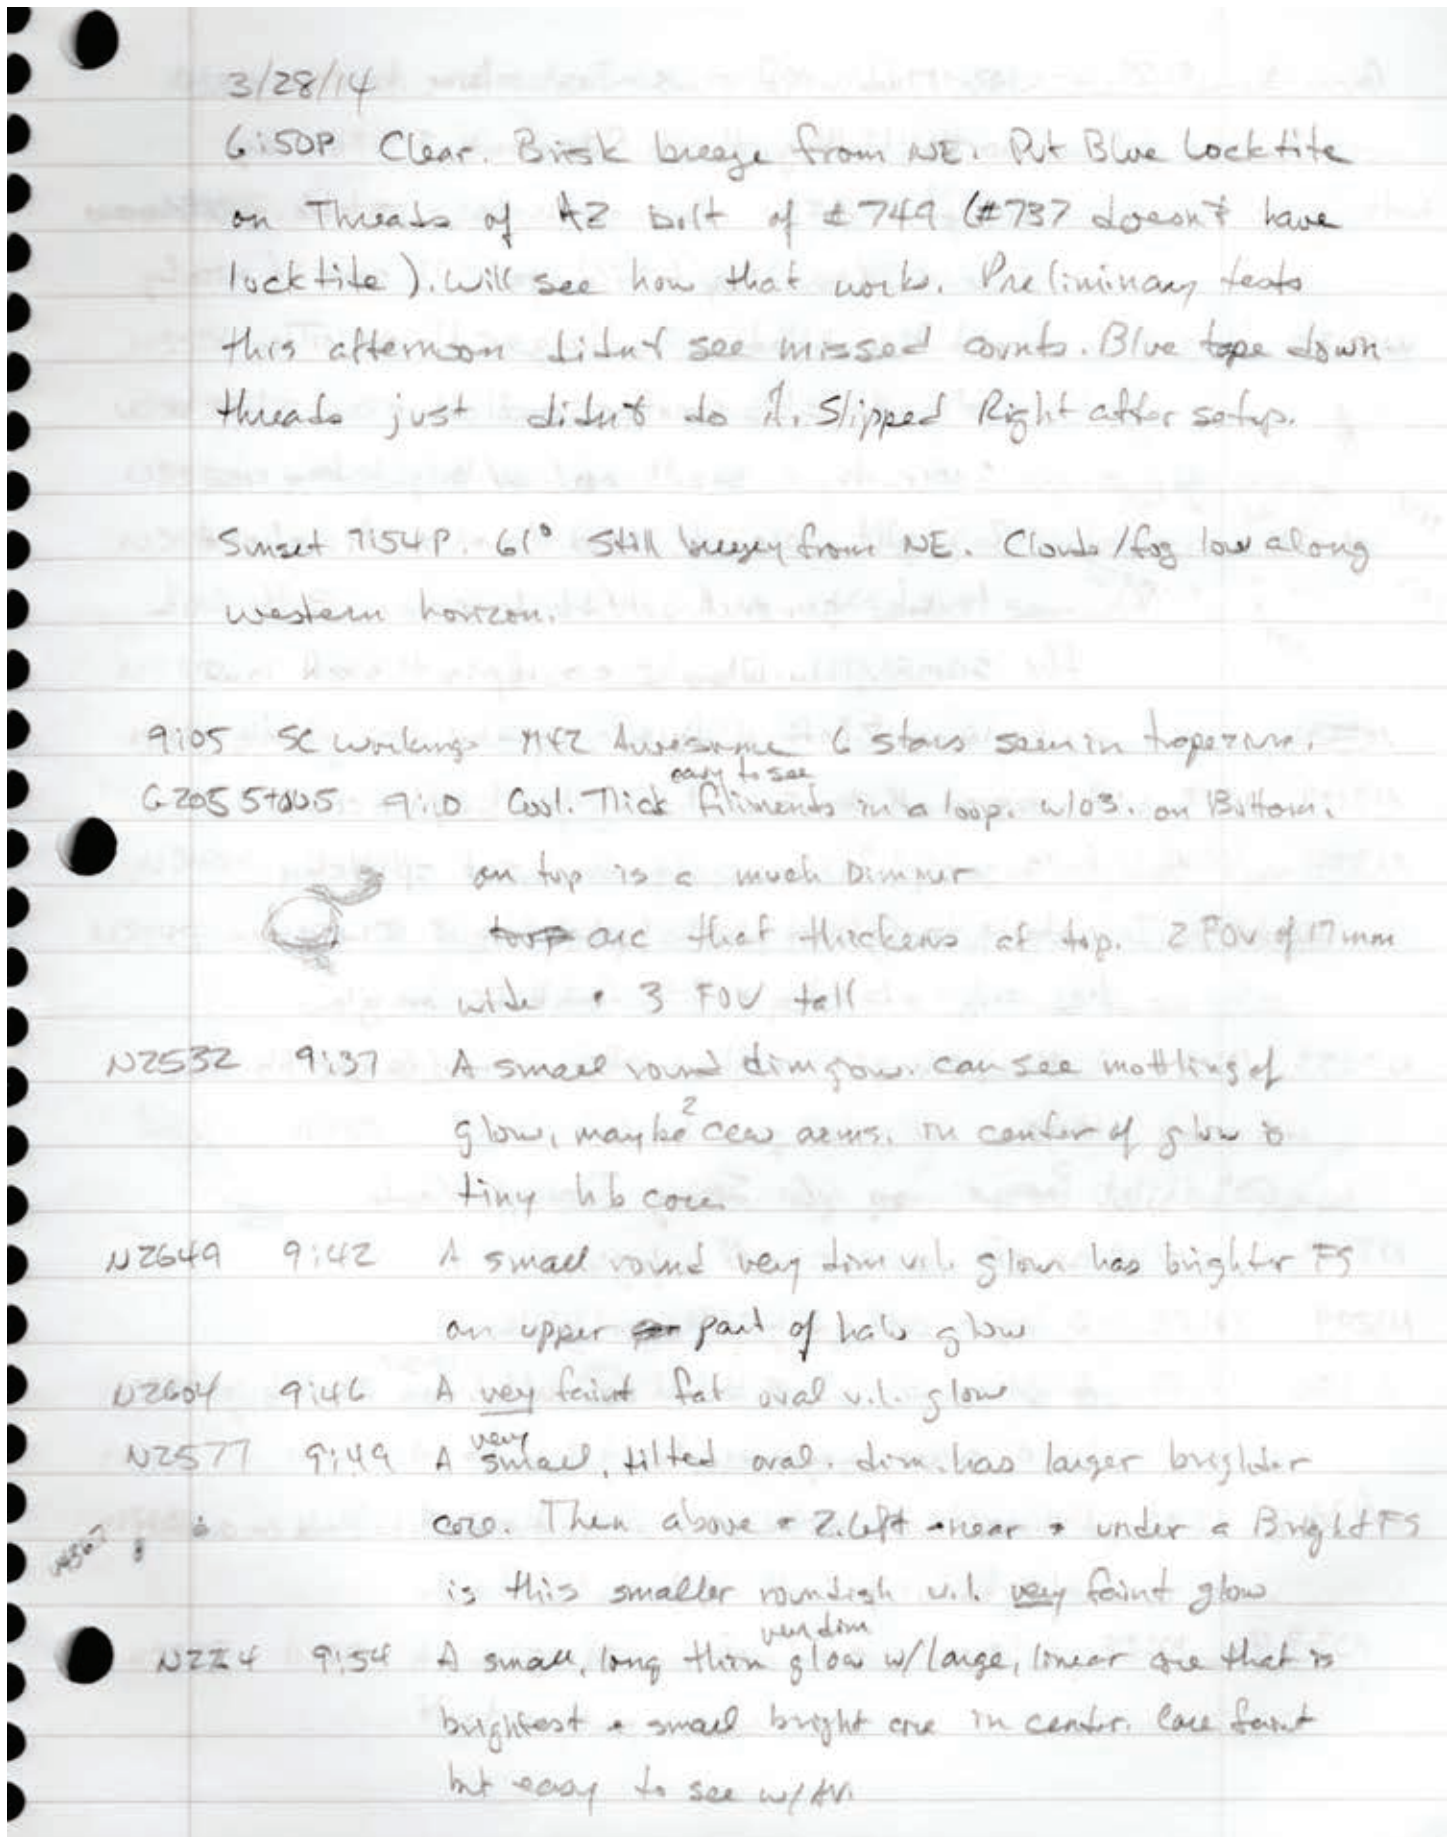 3/28/14
6:50P Clear. Brisk breeze from NE. Put Blue Locktite
on Threads of AZ bolt of #749 (#737 doesn't have
locktite). Will see how that works. Preliminary tests
this afternoon didn't see missed counts. Blue tape down
threads just didn't do it. Slipped Right after setup.
Sunset 7:54P. 61° Still breezy from NE. Clouds/fog low along
western horizon.
9:05 SC working. M42 Awesome 6 stars seen in
easy to see
G205.5+00.5 9:10 Cool. Thick filiments in a loop. w/O3. on Bottom.
on top is a much Dimmer
arc that thickens at top. 2 FOV of 17mm
wide + 3 FOV tall
N2532 9:37 A small round dim glow. can see mottling of
2
glow, maybe ccw arms. in center of glow is
tiny core
N2649 9:42 A small round very dim v.l. glow has brighter FS
on upper part of halo glow
N2604 9:46 A very faint fat oval v.l. glow
very
N2577 9:49 A small, tilted oval. dim. has larger brighter
U4367 core. Then above + 2. left near + under a Bright FS
is this smaller roundish v.l. very faint glow
very dim
9:54 A small, long thin glow w/large, linear core that is
brightest + small bright core in center. Core faint
but easy to see w/AV.